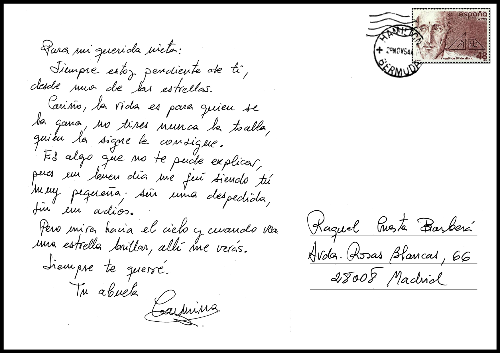 Para mi querida nieta:
Siempre estoy pendiente de ti,
desde una de las estrellas.
Cariño, la vida es para quien se
la gana, no tires nunca la toalla,
quien la sigue la consigue.
Es algo que no te pude explicar,
pues un buen día me fui siendo tú
muy pequeña sin una despedida,
sin un adiós.
Pero mira hacia el cielo y cuando veas
una estrella brillar, allí me verás.
Siempre te querré.
Tu abuela
Carmina
ESPAÑA
HAMILTON
BERMUDA
Raquel Cuesta Barberá
Avda. Rosas Blancas, 66
28008 Madrid